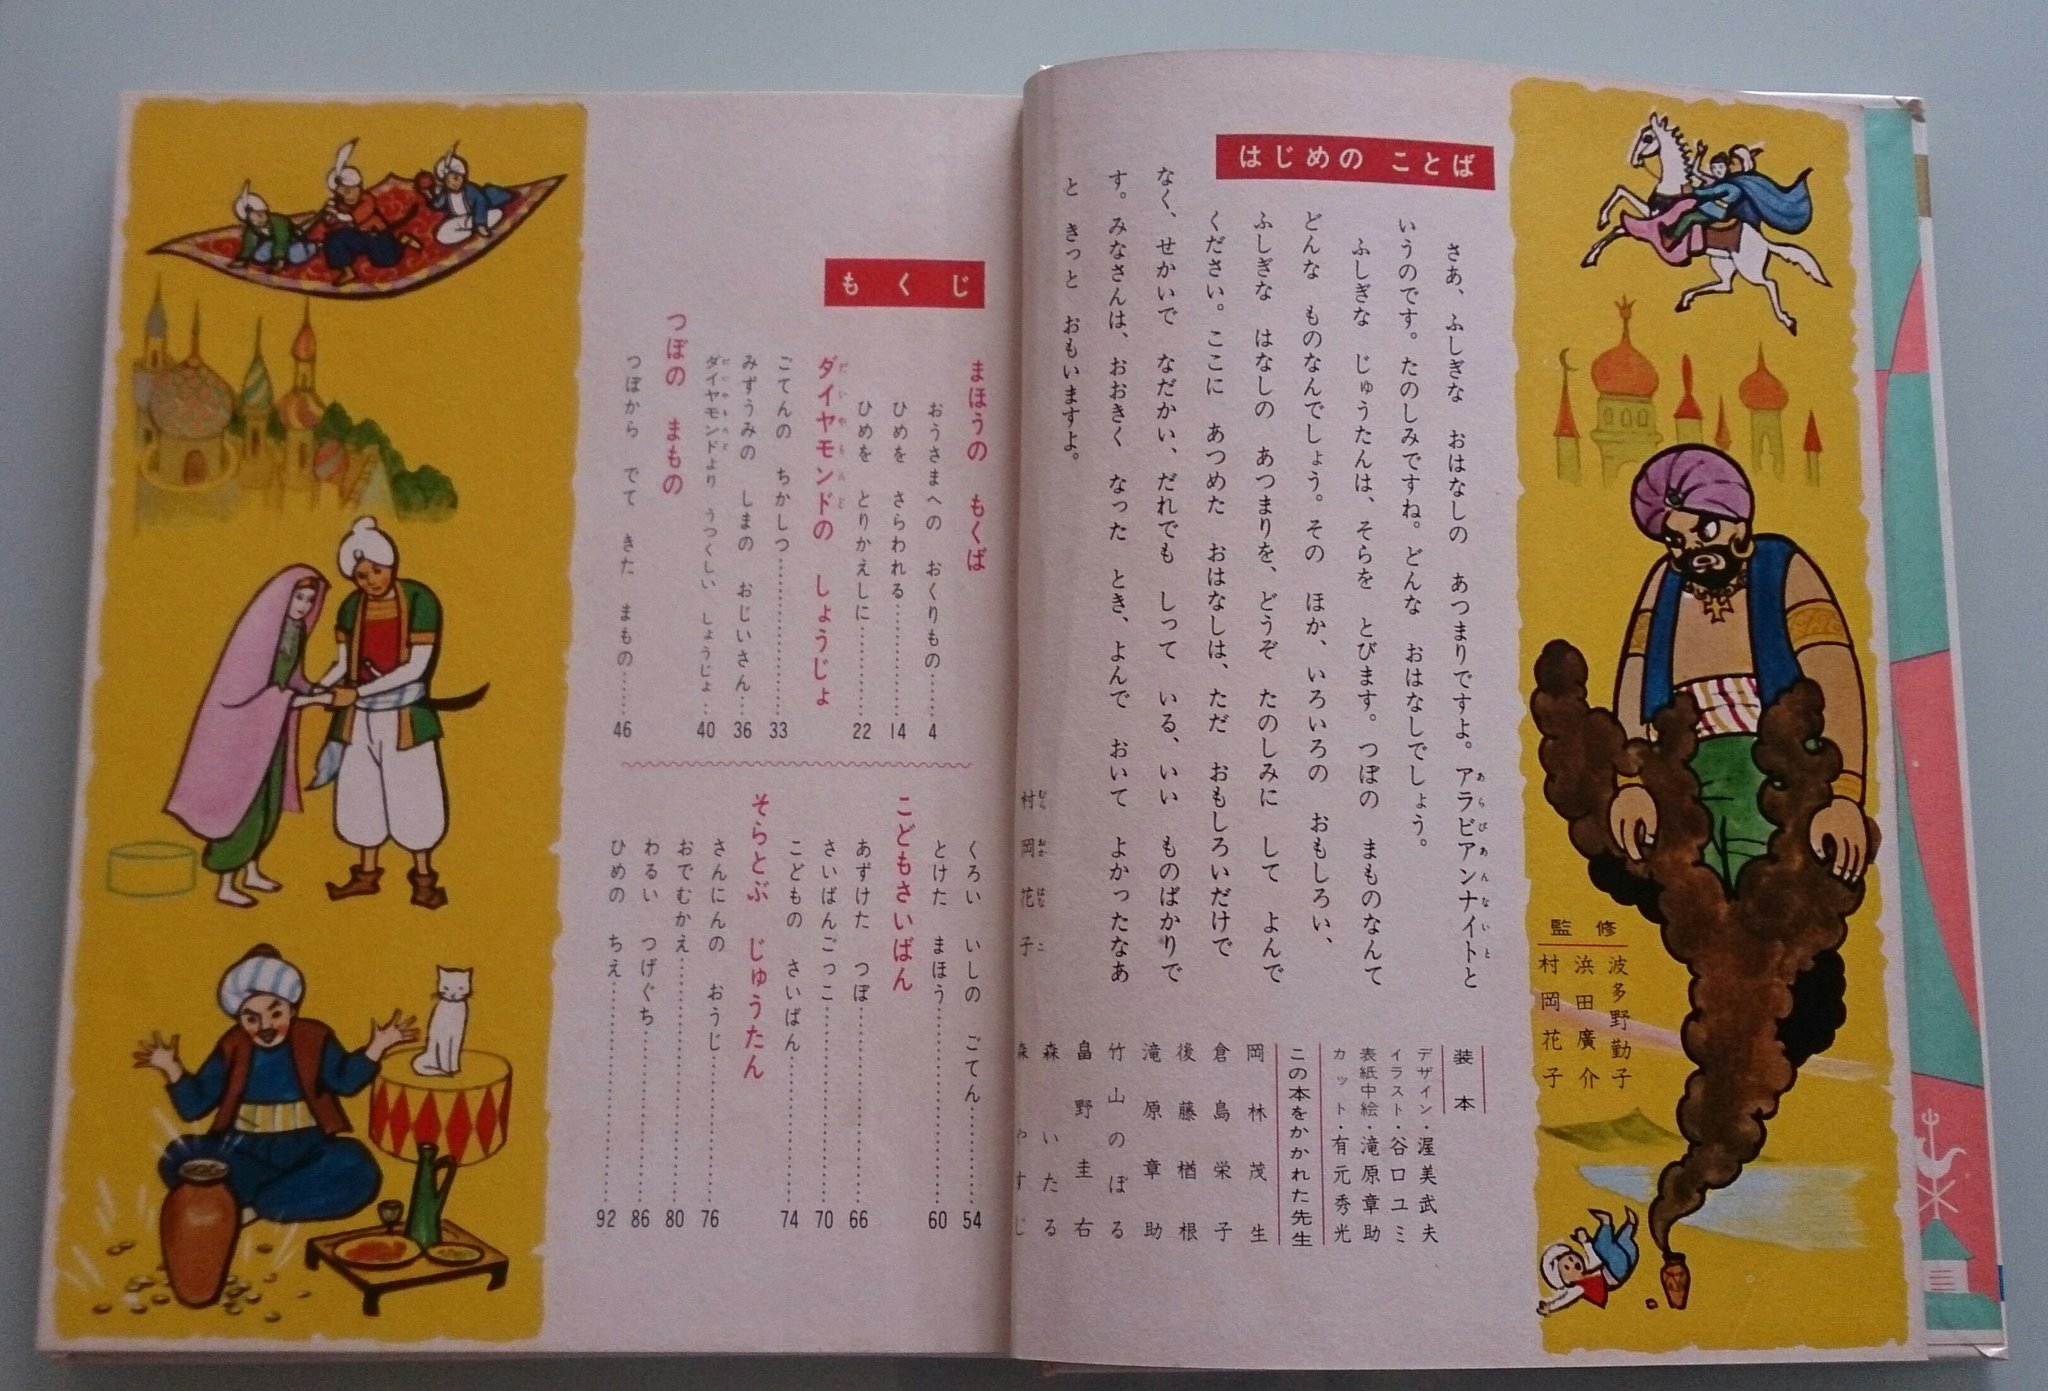 はじめの ことば
さあ、ふしぎな おはなしの あつまりですよ。アラビアンナイトと
いうのです。たのしみですね。どんな おはなしでしょう。
ふしぎな じゅうたんは、そらを とびます。つぼの まものなんて
どんな ものなんでしょう。その ほか、いろいろの おもしろい、
ふしぎな はなしの あつまりを、どうぞ たのしみに して よんで
ください。ここに あつめた おはなしは、ただ おもしろいだけで
なく、せかいで なだかい、だれでも しって いる、いい ものばかりで
す。みなさんは、おおきく なった とき、よんで おいて よかったなあ
と きっと おもいますよ。
村岡花子
むらおかはなこ
監修
波多野勤子
浜田廣介
村岡花子
装本
デザイン・渥美武夫
イラスト・谷口ユミ
表紙中絵・滝原章助
カット・有元秀光
この本をかかれた先生
岡林茂生
倉島栄子
後藤楢根
滝原章助
竹山のぼる
畠野圭右
森いたる
森やすじ
もくじ
まほうの もくば
おうさまへの おくりもの……4
ひめを さらわれる……14
ひめを とりかえしに……22
ダイヤモンドの しょうじょ
ごてんの ちかしつ……33
みずうみの しまの おじいさん…36
ダイヤモンドより うつくしい しょうじょ…40
つぼの まもの
つぼから でて きた まもの……46
くろい いしの ごてん……54
とけた まほう……60
こどもさいばん
あずけた つぼ……66
さいばんごっこ……70
こどもの さいばん……74
そらとぶ じゅうたん
さんにんの おうじ……76
おでむかえ……80
わるい つげぐち……86
ひめの ちえ……92